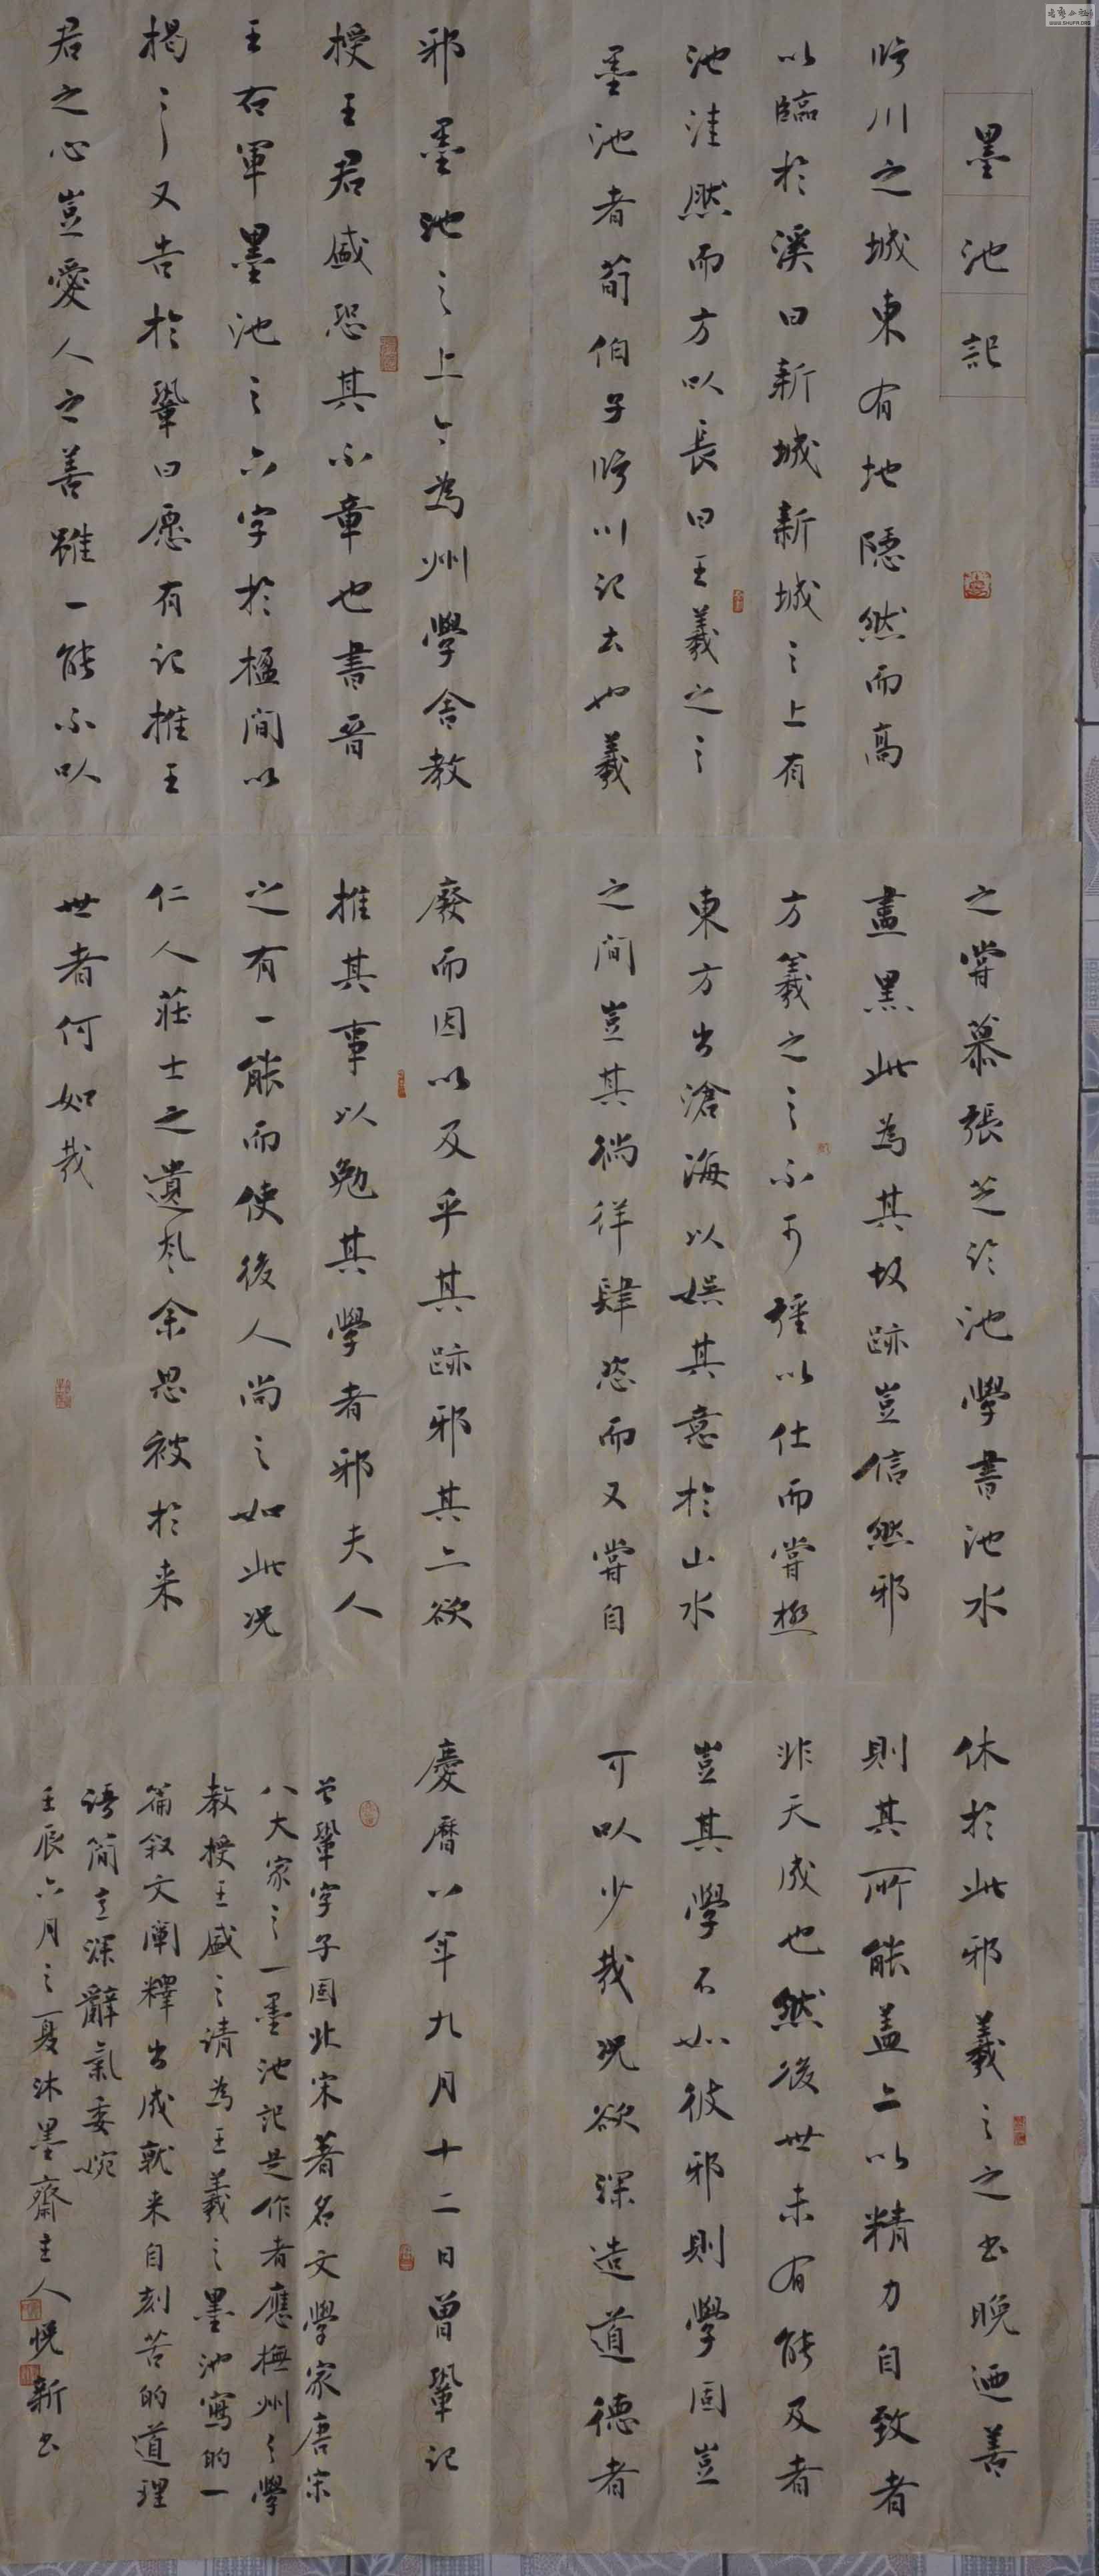 墨池記
臨川之城東有地隱然而高
以臨於溪曰新城新城之上有
池洼然而方以長曰王羲之之
墨池者荀伯子臨川記云也羲
之嘗慕張芝於池學書池水
盡黑此為其故跡豈信然邪
方羲之之不可强以仕而嘗極
東方出滄海以娛其意於山水
之間豈其徜徉肆恣而又嘗自
休於此邪羲之之书晚迺善
則其所能盖亦以精力自致者
非天成也然後世未有能及者
豈其學不如彼邪則學固豈
可以少哉况欲深造道德者
邪墨池之上今為州學舍教
授王君盛恐其不章也書晉
王右軍墨池之六字於楹間以
揭之又告於鞏曰愿有记推王
君之心豈愛人之善雖一能不以
廢而因以及乎其跡邪其亦欲
推其事以勉其學者邪夫人
之有一能而使後人尚之如此况
仁人莊士之遺風余思被於来
世者何如哉
慶曆八年九月十二日曾鞏记
曾鞏字子固北宋著名文學家唐宋
八大家之一墨池記是作者應撫州州學
教授王盛之请為王羲之墨池寫的一
篇叙文闡釋出成就来自刻苦的道理
语简意深辭氣委婉
壬辰六月之夏沐墨齋主人悦新书
WWW.SHUFA.ORG